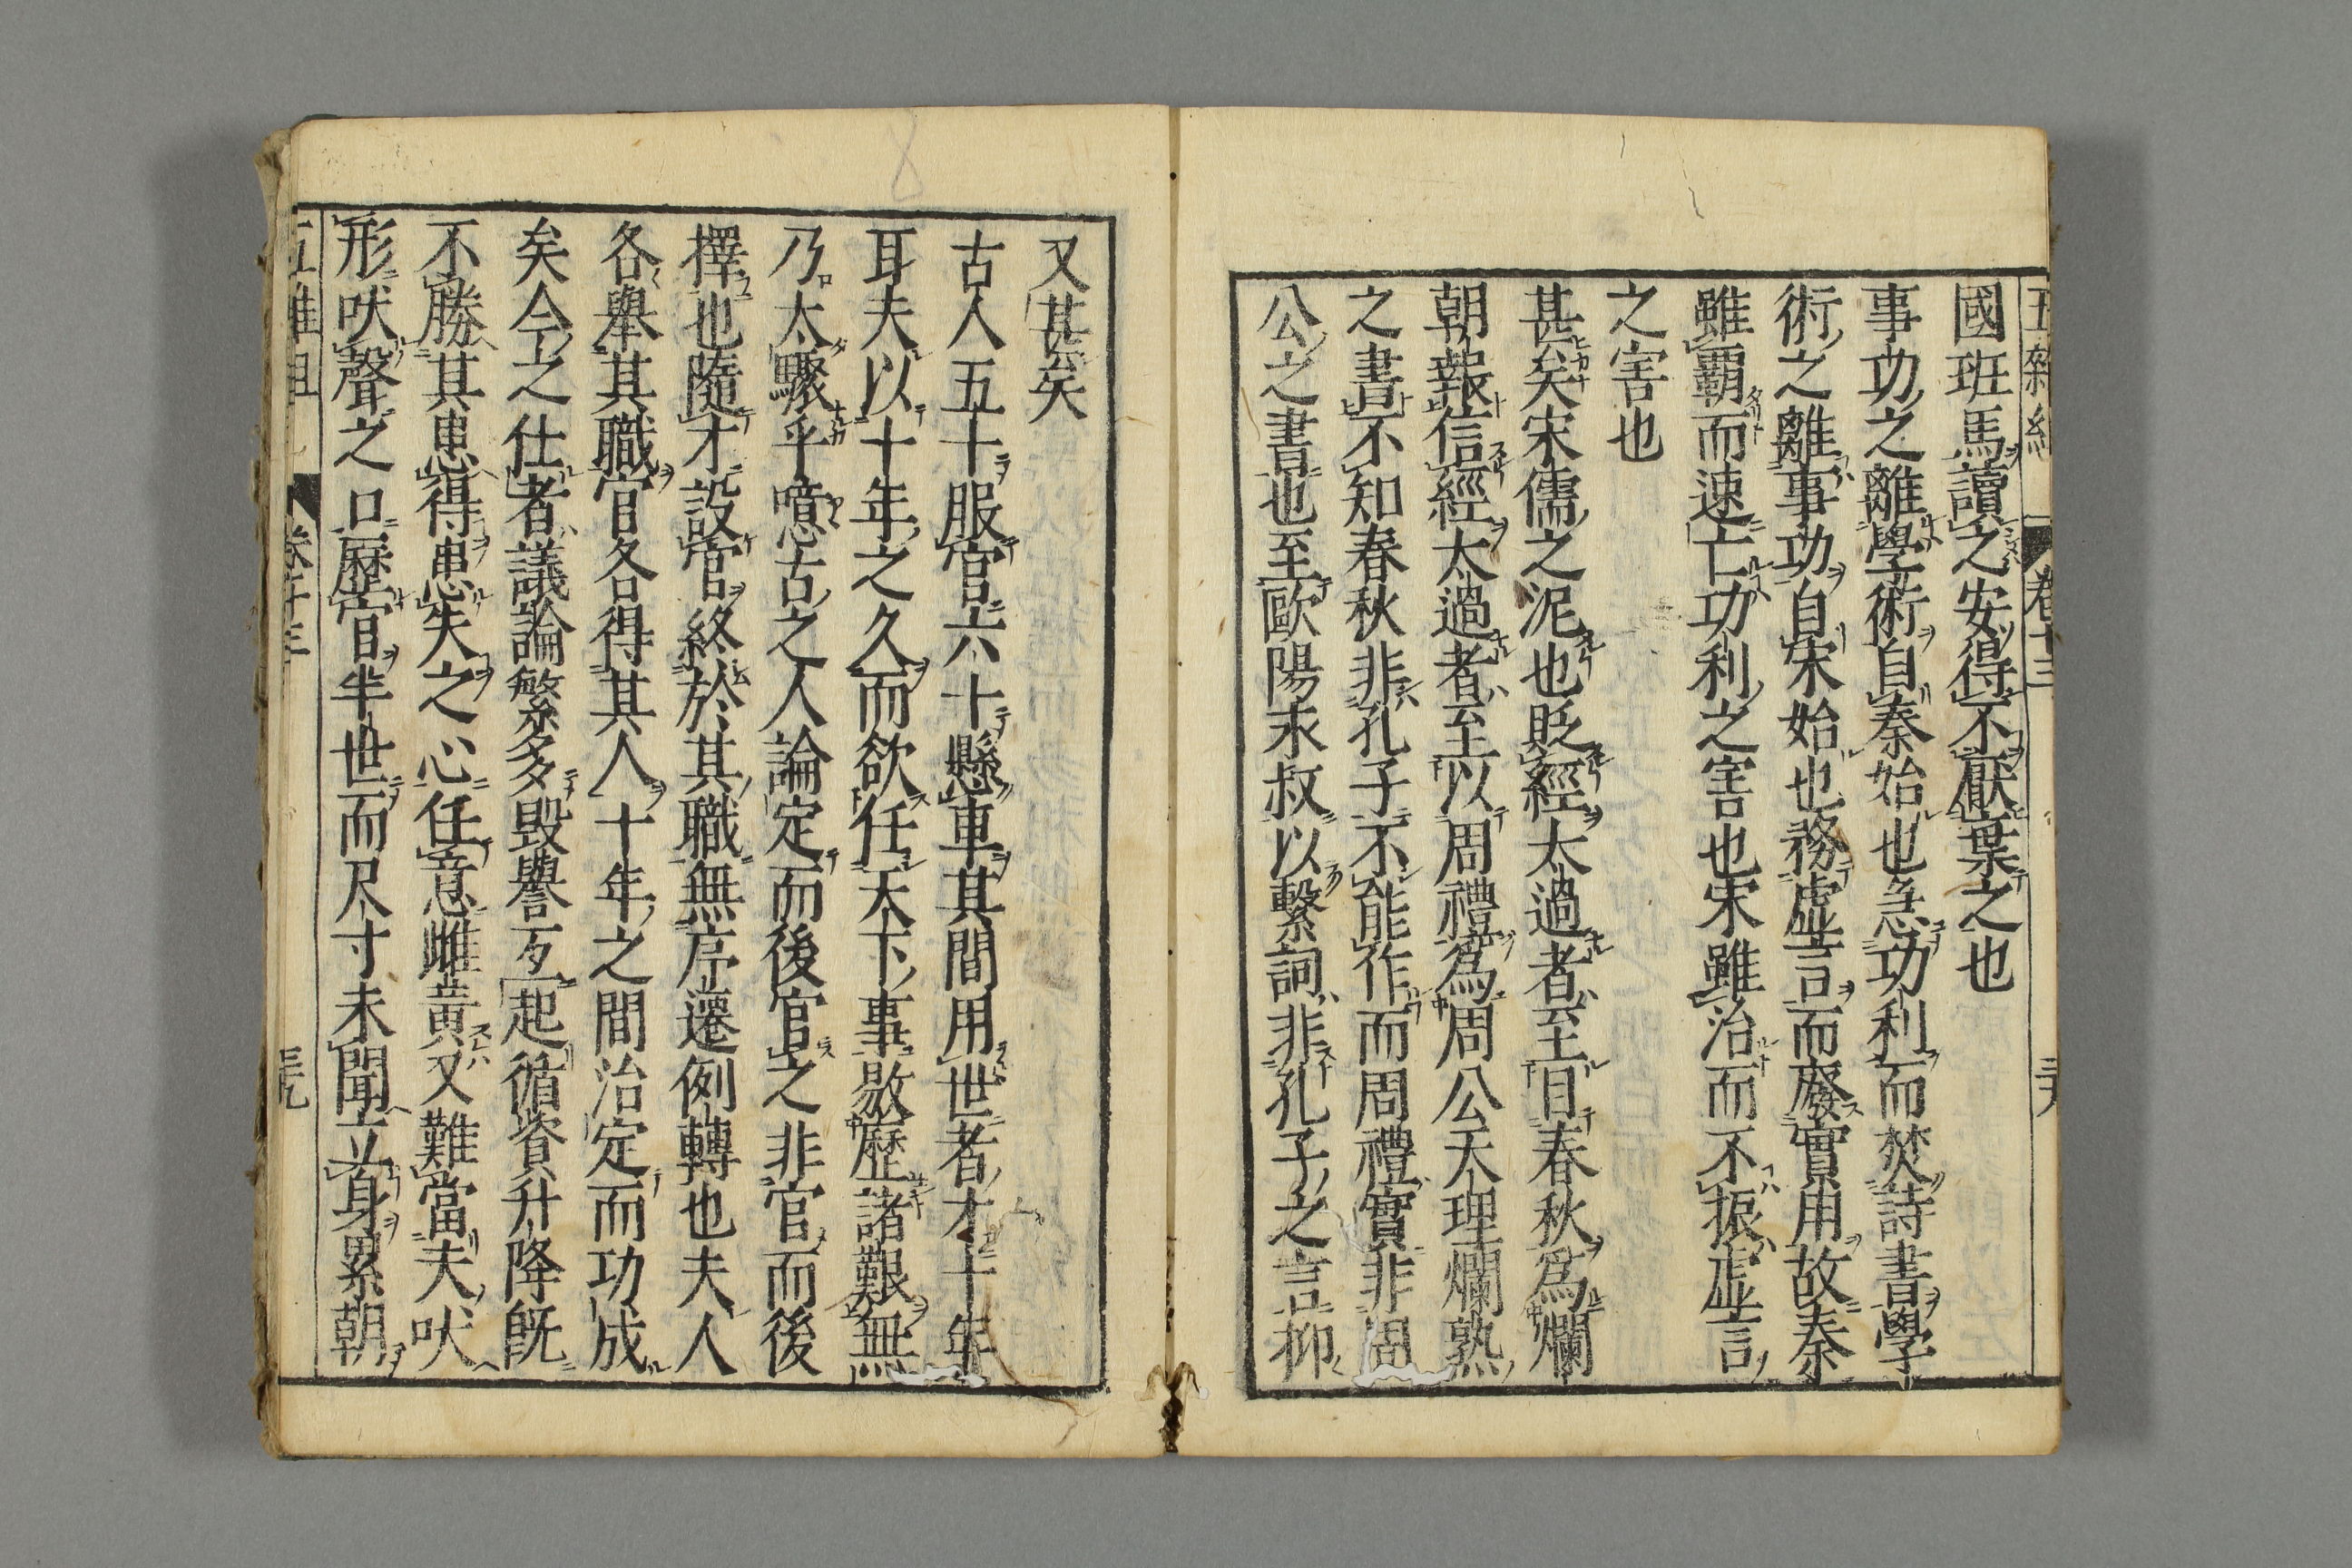 國班馬讀之安得不厭棄之也
事功之離學術自秦始也急功利而焚詩書學
術之離事功自宋始也務虛言而廢實用故秦
雖霸而速亡功利之害也宋雖治而不振虛言
之害也
甚矣宋儒之泥也貶經太過者至目春秋為爛
朝報信經太過者至以周禮為周公天理爛熟
之書不知春秋非孔子不能作而周禮實非周
公之書也至歐陽永叔以繫詞非孔子之言抑
又甚矣
古人五十服官六十懸車其間用世者才十年
耳夫以十年之久而欲任天下事敭歷諸艱無
乃太驟乎噫古之人論定而後官之非官而後
擇也隨才設官終於其職無序遷例轉也夫人
各舉其職官各得其人十年之間治定而功成
矣今之仕者議論繁多毀譽互起循資升降既
不勝其患得患失之心任意雌黃又難當夫吠
形吠聲之口歷官半世而尺寸未聞立身累朝
卷十三